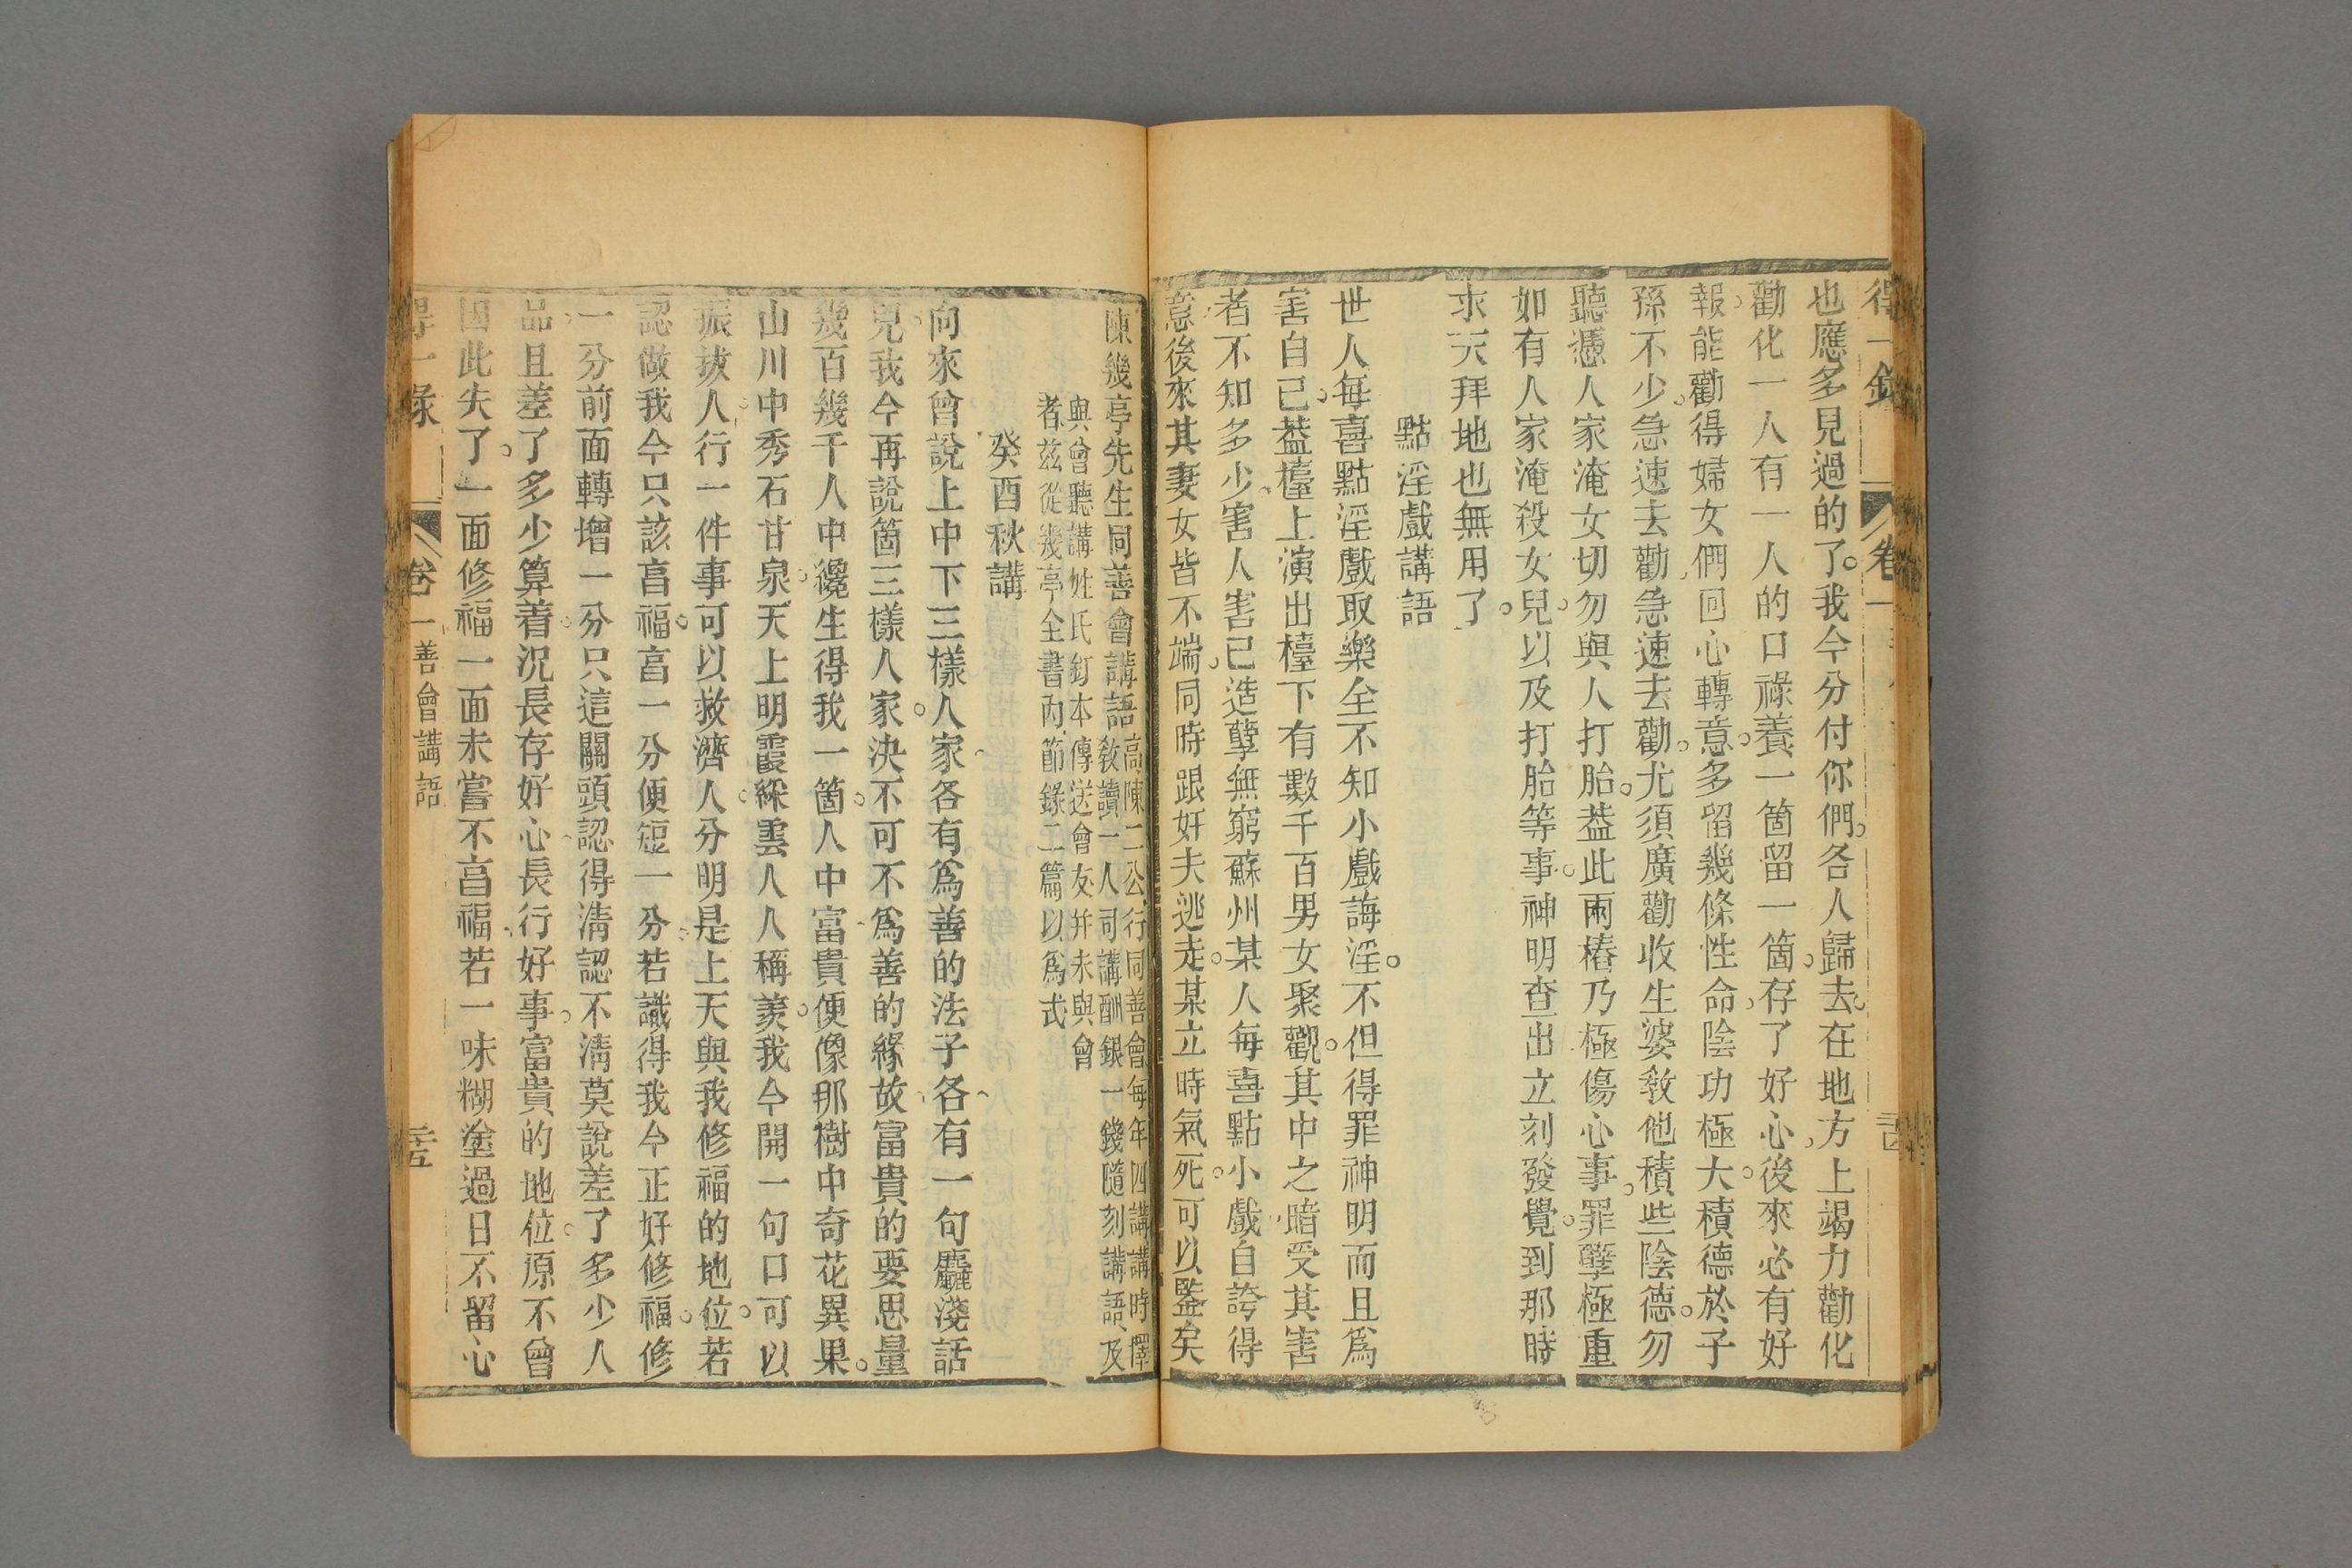 得一錄 卷一
也應多見過的了。我今分付你們。各人歸去。在地方上竭力勸化
勸化一人有一人的口祿養一箇留一箇。存了好心。後來必有好
報。能勸得婦女們回心轉意。多留幾條性命。陰功極大。積德於子
孫不少。急速去勸。急速去勸。尤須廣勸收生婆教他積些陰德。勿
聽憑人家淹女切勿與人打胎。葢此兩樁乃極傷心事。罪孽極重
如有人家淹殺女兒。以及打胎等事。神明查出立刻發覺。到那時
求天拜地也無用了。
點淫戲講語
世人每喜點淫戲取樂全不知小戲誨淫。不但得罪神明而且爲
害自己。葢檯上演出檯下有數千百男女聚觀。其中之暗受其害
者不知多少。害人害己。造孽無窮蘇州某人每喜點小戲自誇得
意。後來其妻女皆不端。同時跟奸夫逃走。某立時氣死。可以鑒矣
陳幾亭先生同善會講語 高陳二公行同善會每年四講講時擇
教讀一人司講酬銀一錢隨刻講語及
與會聽講姓氏釘本傳送會友并未與會
者茲從幾亭全書內節錄二篇以爲式
癸酉秋講
向來曾說上中下三樣人家。各有爲善的法子。各有一句麤淺話
兒。我今再說箇三樣人家。決不可不爲善的緣故。富貴的要思量
幾百幾千人中纔生得我一箇。人中富貴。便像那樹中奇花異果。
山川中秀石甘泉。天上明霞綵雲。人人稱羨。我今開一句口可以
振拔人。行一件事可以救濟人。分明是上天與我修福的地位。若
認做我今只該亯福。亯一分便短一分。若識得我今正好修福。修
一分前面轉增一分。只這關頭認得清認不清莫說差了多少人
品。且差了多少算着。況長存好心。長行好事。富貴的地位。原不曾
因此失了。一面修福一面未嘗不亯福。若一味糊塗過日不留心
得一錄 卷一善會講語 二十五